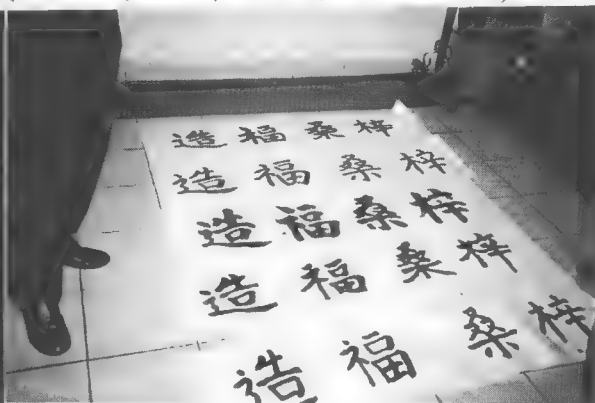 造福桑梓
造福桑梓
造福桑梓
造福桑梓
造福桑梓